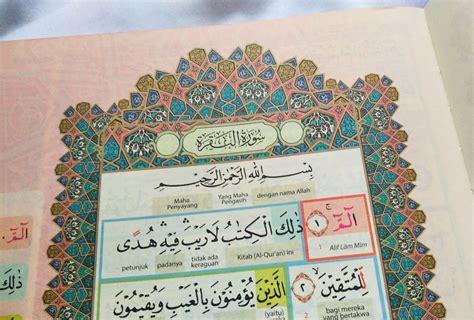 سورة البقرة
بِسْمِ اللهِ الرَّحْمٰنِ الرَّحِيْمِ
dengan nama Allah Yang Maha Pengasih Maha Penyayang
الٓمّٓ ۚ ١ ذٰلِكَ الْكِتٰبُ لَا رَيْبَ فِيْهِ هُدًى
1 Alif Lām Mīm Kitab (Al-Qur'an) ini tidak ada keraguan padanya petunjuk
لِّلْمُتَّقِيْنَ ٢ الَّذِيْنَ يُؤْمِنُوْنَ بِالْغَيْبِ وَيُقِيْمُوْنَ
2 bagi mereka yang bertakwa (yaitu)
الٓمّٓ
ذٰلِكَ